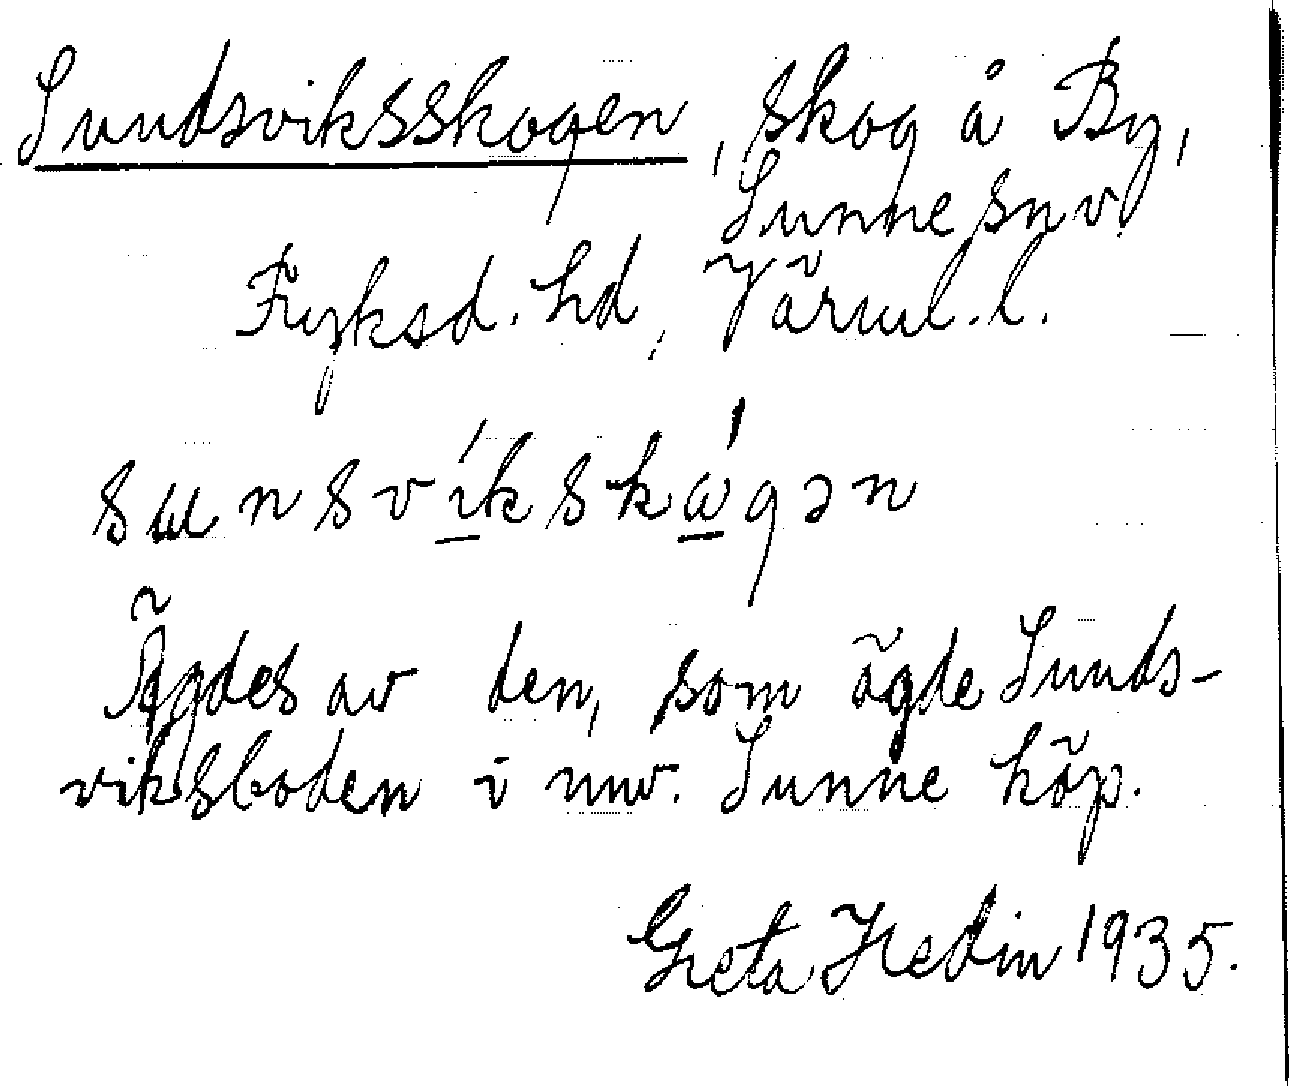 Sundsviksskogen, skog å By,
Sunne snv
Fryksd. hd, Värml. l.
sunsvíkskɷ́gən
Ägdes av den, som ägde Sunds-
viksboden i nuv. Sunne köp.
Greta Hedin 1935.